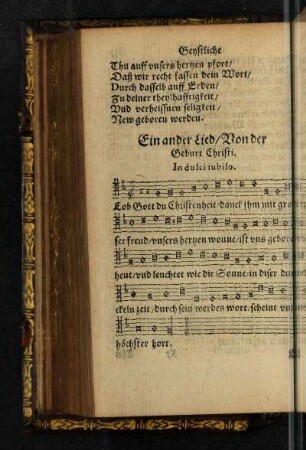 Geystliche
Thu auff vnsers hertzen pfort/
Daß wir recht fassen dein Wort/
Durch dasselb auff Erden/
Zu deiner theylhafftigkeit/
Vnd verheissnen seligkeit/
New geboren werden.
Ein ander Lied/Von der
Geburt Christi.
In dulci iubilo.
Lob Gott du Christenheit/danck jhm mit gro
ser freud/vnsers hertzen wonne/ist vns gebor
heut/vnd leuchtet wie die Sonne/in diser dunck
ckeln zeit/durch sein werdes wort/scheint vn
höchster hort.